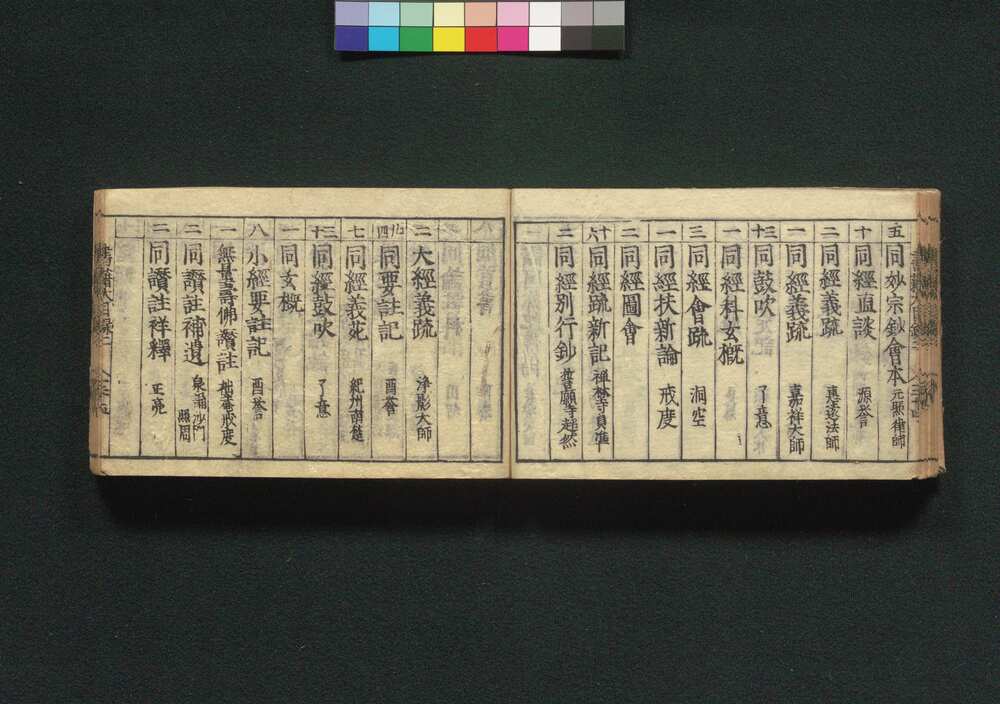 五 同妙宗鈔會本 元照律師
十 同經直談 源誉
二 同經義疏 惠遠法師
一 同經義疏 嘉祥大師
十三 同鼓吹 了意
一 同經科玄概
三 同經會疏 洞空
一 同經扶新論 戒度
二 同經圖會
十六 同經疏新記
二 同經別行鈔
二 大經義疏 淨影大師
同要註記 酉誉
七 同經義苑 紀州南楚
十三 同經鼓吹 了意
一 同玄概
八 小經要註記 酉誉
一 無量壽佛讚註 拙庵戒度
二 同讚註補遺 泉涌沙門照周
二 同讚註祥釋 正亮